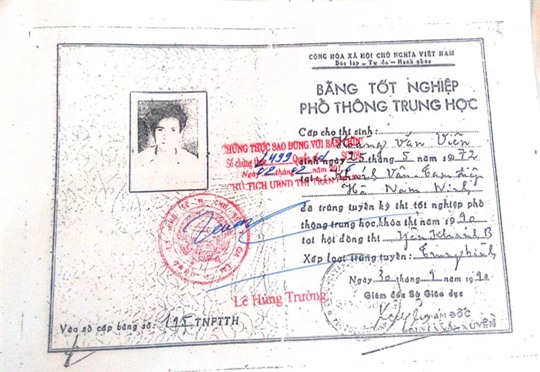 CỘNG HÒA XÃ HỘI CHỦ NGHĨA VIỆT NAM
Độc lập - Tự do - Hạnh phúc
BẰNG TỐT NGHIỆP
PHỔ THÔNG TRUNG HỌC
Cấp cho thí sinh:
Hoàng Văn Viên
sinh ngày 25 tháng 5 năm 1972
Khánh Vân - Tam Điệp
Hà Nam Ninh
đã trúng tuyển kỳ thi tốt nghiệp phổ
thông trung học, khóa thi năm 1990
tại hội đồng thi Yên Khánh B
Xếp loại trúng tuyển: Trung bình
Ngày 30 tháng 9 năm 1990
Giám đốc Sở Giáo dục
CHỨNG THỰC SAO ĐÚNG VỚI BẢN CHÍNH
Số chứng thực 499 Quyển
Ngày 02
CHỦ TỊCH UBND THỊ TRẤN
Lê Hùng Trường
Vào sổ cấp bằng số: 195 TNPTTH